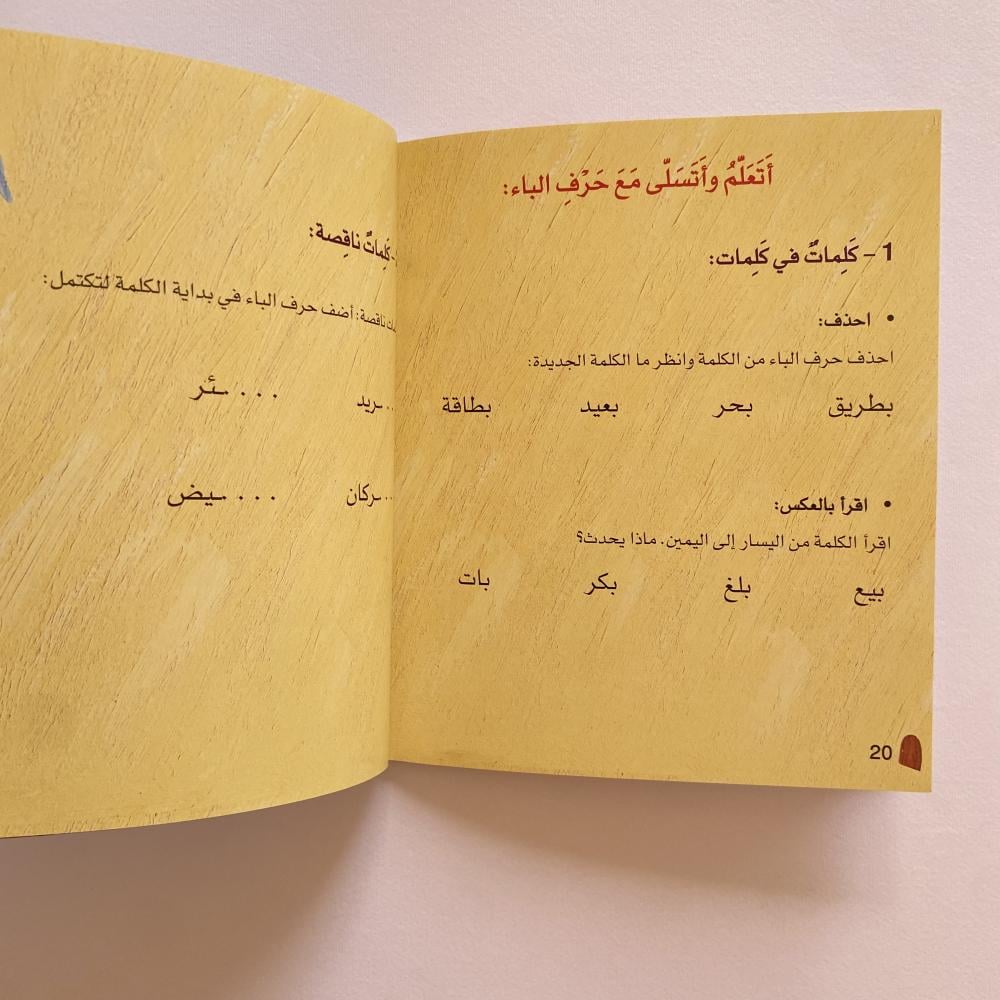 أَتَعَلَّمُ وأَتَسَلّى مَعَ حَرْفِ الباء:
1 – كَلِماتٌ في كَلِمات:
• احذف:
احذف حرف الباء من الكلمة وانظر ما الكلمة الجديدة:
بطريق بحر بعيد بطاقة
• اقرأ بالعكس:
اقرأ الكلمة من اليسار إلى اليمين. ماذا يحدث؟
بيع بلغ بكر بات
20
كَلِماتٌ ناقِصة:
ناقصة: أضف حرف الباء في بداية الكلمة لتكتمل:
..ـريد ....ـئر
...ـركان ....ـيض